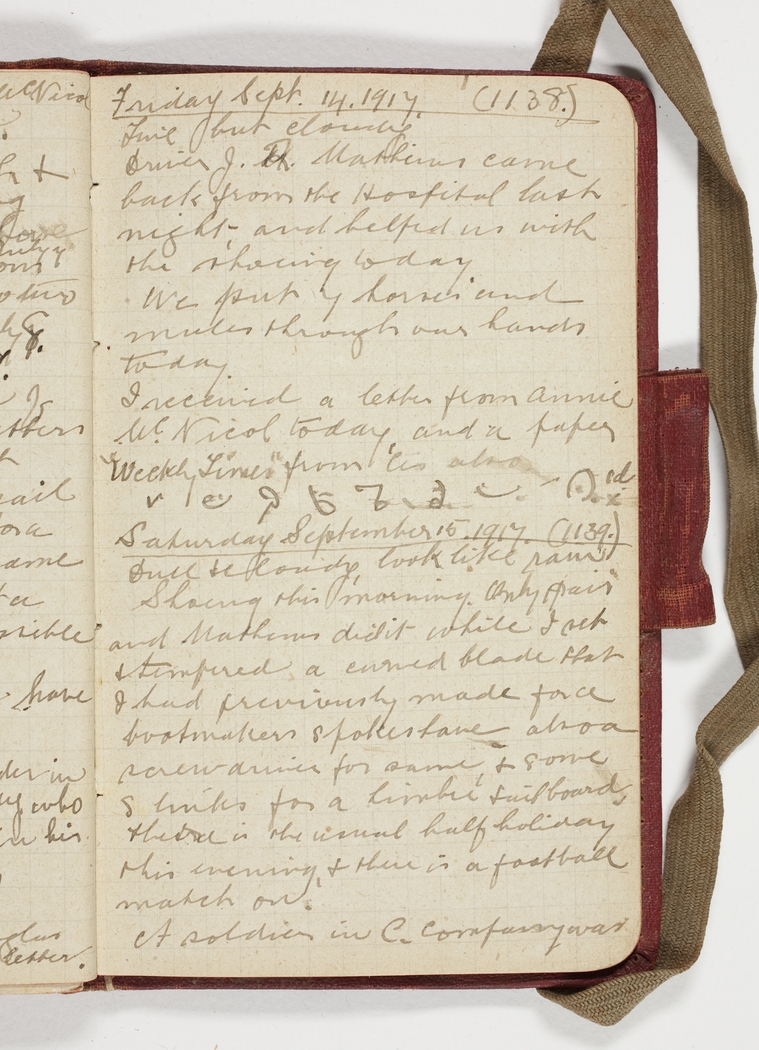 Mc Nico
h &
ng
ons
ly
J
atters
t
rail
for a
came
t a
ssible
have
der in
who
in his
letter.
Friday Sept. 14. 1917. (1138.)
Fine but cloudy
Driver J. H. Mathews came
back from the Hospital last
night and helped us with
the shoeing today
We put 9 horses and
mules through our hands
today
I received a letter from Annie
Mc Nicol today and a paper
"Weekly Times" from also
Saturday September 15. 1917. (1139.)
Dull & cloudy look like rain
Shoeing this morning. Only
and Mathews did it while I set
& tempered a curved blade that
I had previously made for a
bootmakers spokeshave also a
screwdriver for same, & some
S links for a limber tailboard,
there is the usual half holiday
this evening, & there is a football
match on.
A soldier in C. Company was